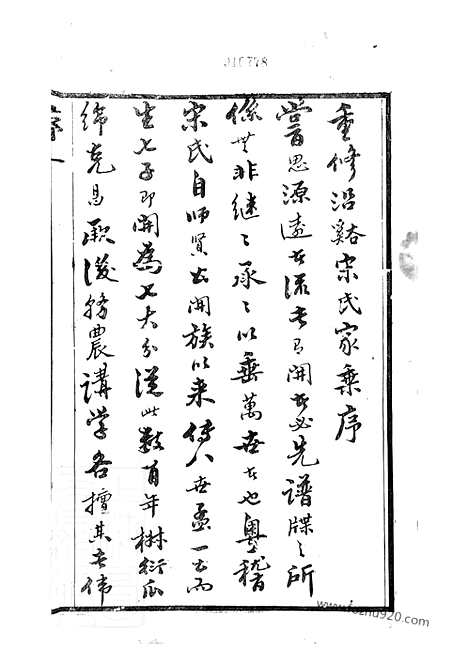 010778
重修沿谿宋氏家乘序
嘗思源遠者流長有開者必先譜牒之所
係無非繼〻承〻以垂萬世者也粤稽
宋氏自師賢公開族以来傳八世孟一公而
生七子即開為七大分從此數百年椒衍瓜
綿克昌厥後務農講學各擅其長偉
卷一